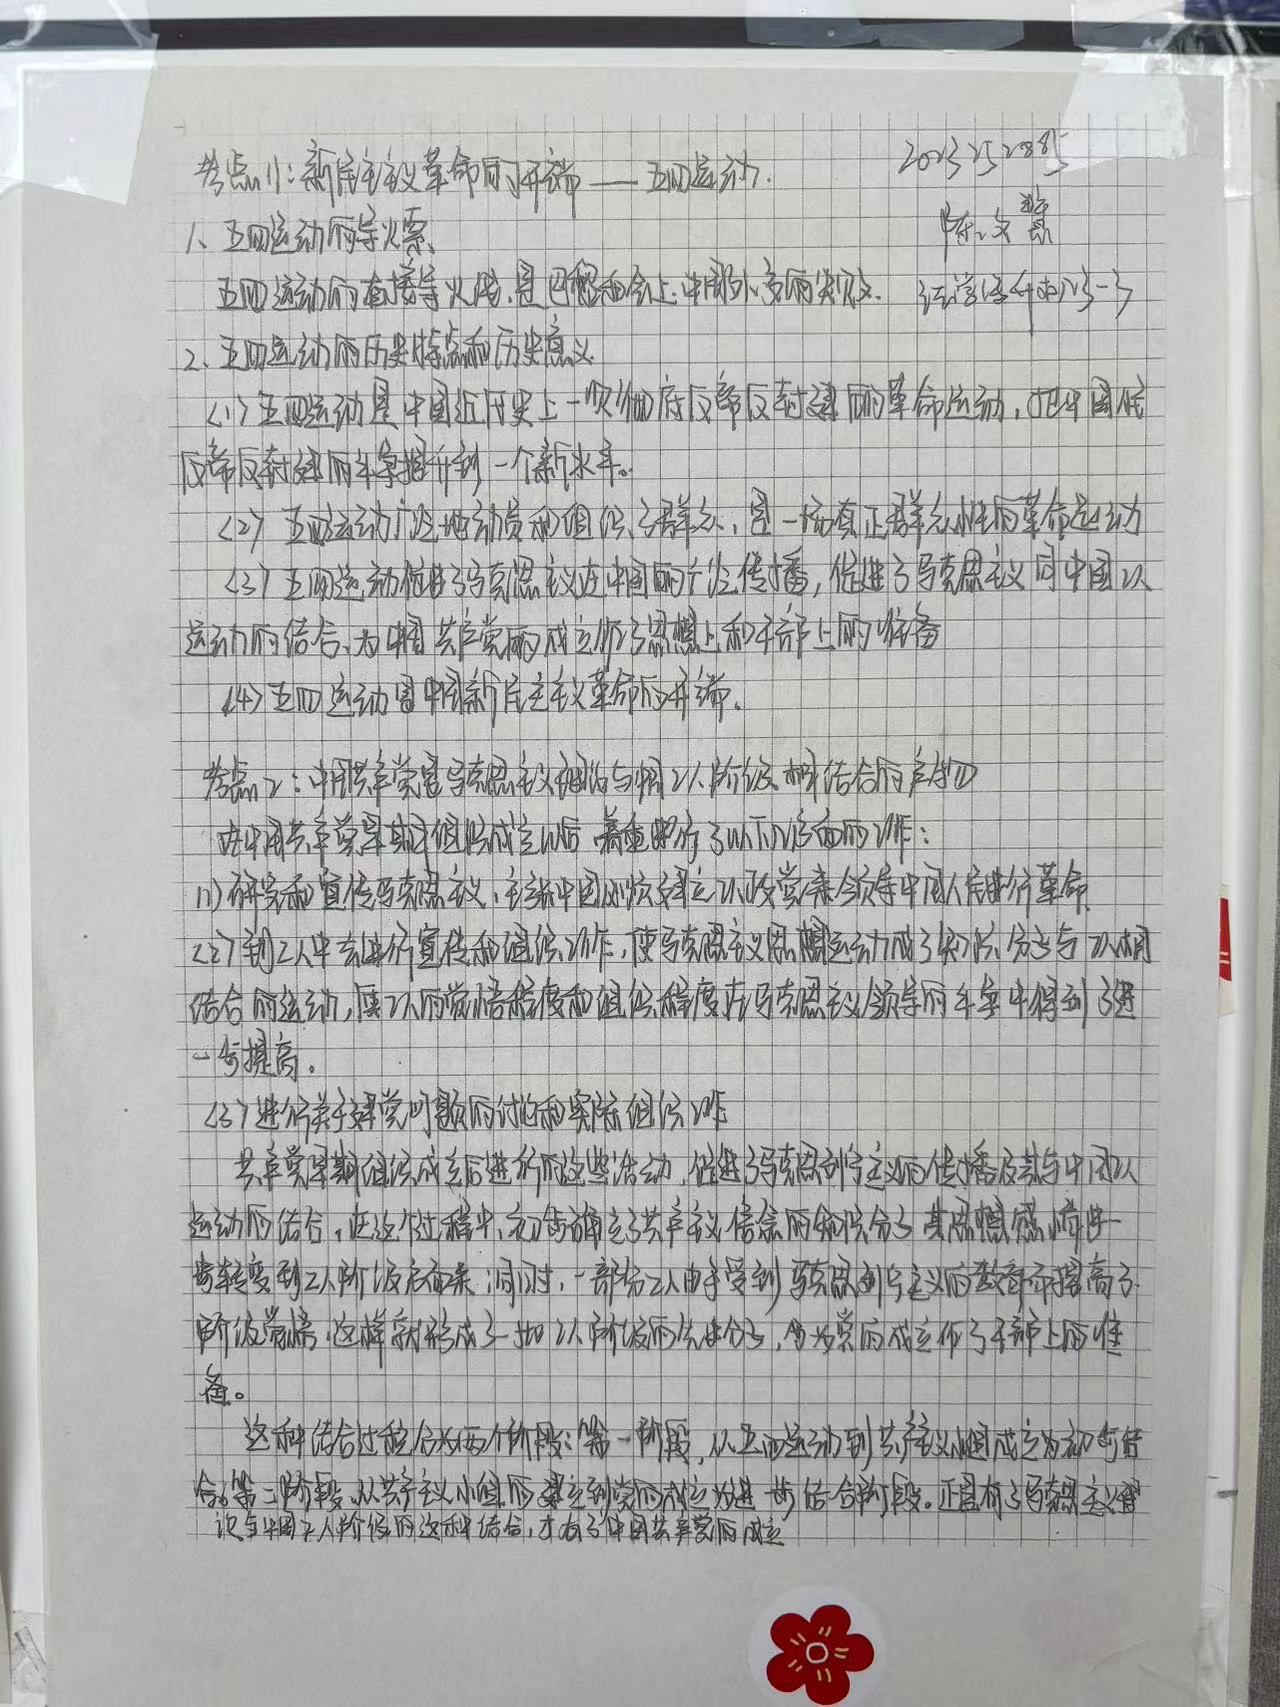 考点1：新民主主义革命的开端——五四运动.
2023252885
陈文慧
1、五四运动的导火索、
五四运动的直接导火线,是巴黎和会上中国外交的失败.
2、五四运动的历史特点和历史意义
(1)五四运动是中国近代史上一次彻底反帝反封建的革命运动，把中国人民
反帝反封建的斗争提升到一个新水平。
(2)五四运动广泛地动员和组织了群众，是一场真正群众性的革命运动
(3)五四运动促进了马克思主义在中国的广泛传播，促进了马克思主义同中国工人
运动的结合、为中国共产党的成立作了思想上和干部上的准备
(4)五四运动是中国新民主主义革命的开端.
考点2：中国共产党是马克思主义理论与中国工人阶级相结合的产物
在中国共产党早期组织成立以后 着重进行了以下几方面的工作：
(1)研究和宣传马克思主义，主张中国必须建立工人政党来领导中国人民进行革命
(2)到工人中去进行宣传和组织工作，使马克思主义思想运动成了知识分子与工人相
结合的运动，使工人的觉悟程度和组织程度在马克思主义领导的斗争中得到了进
一步提高。
(3)进行关于建党问题的讨论和实际组织工作
共产党早期组织成立后进行的这些活动，促进了马克思列宁主义的传播及其与中国工人
运动的结合，在这个过程中、初步确立了共产主义信念的知识分子 其思想感情进一
步转变到工人阶级方面来；同时，一部分工人由于受到马克思列宁主义的教育而提高了
阶级觉悟，这样就形成了一批工人阶级的先进分子，为党的成立作了干部上的准
备。
这种结合过程分为两个阶段：第一阶段，从五四运动到共产主义小组成立为初步结
合。第二阶段、从共产主义小组的建立到党的成立为进一步结合阶段。正是有了马克思主义
与中国工人阶级的这种结合，才有了中国共产党的成立